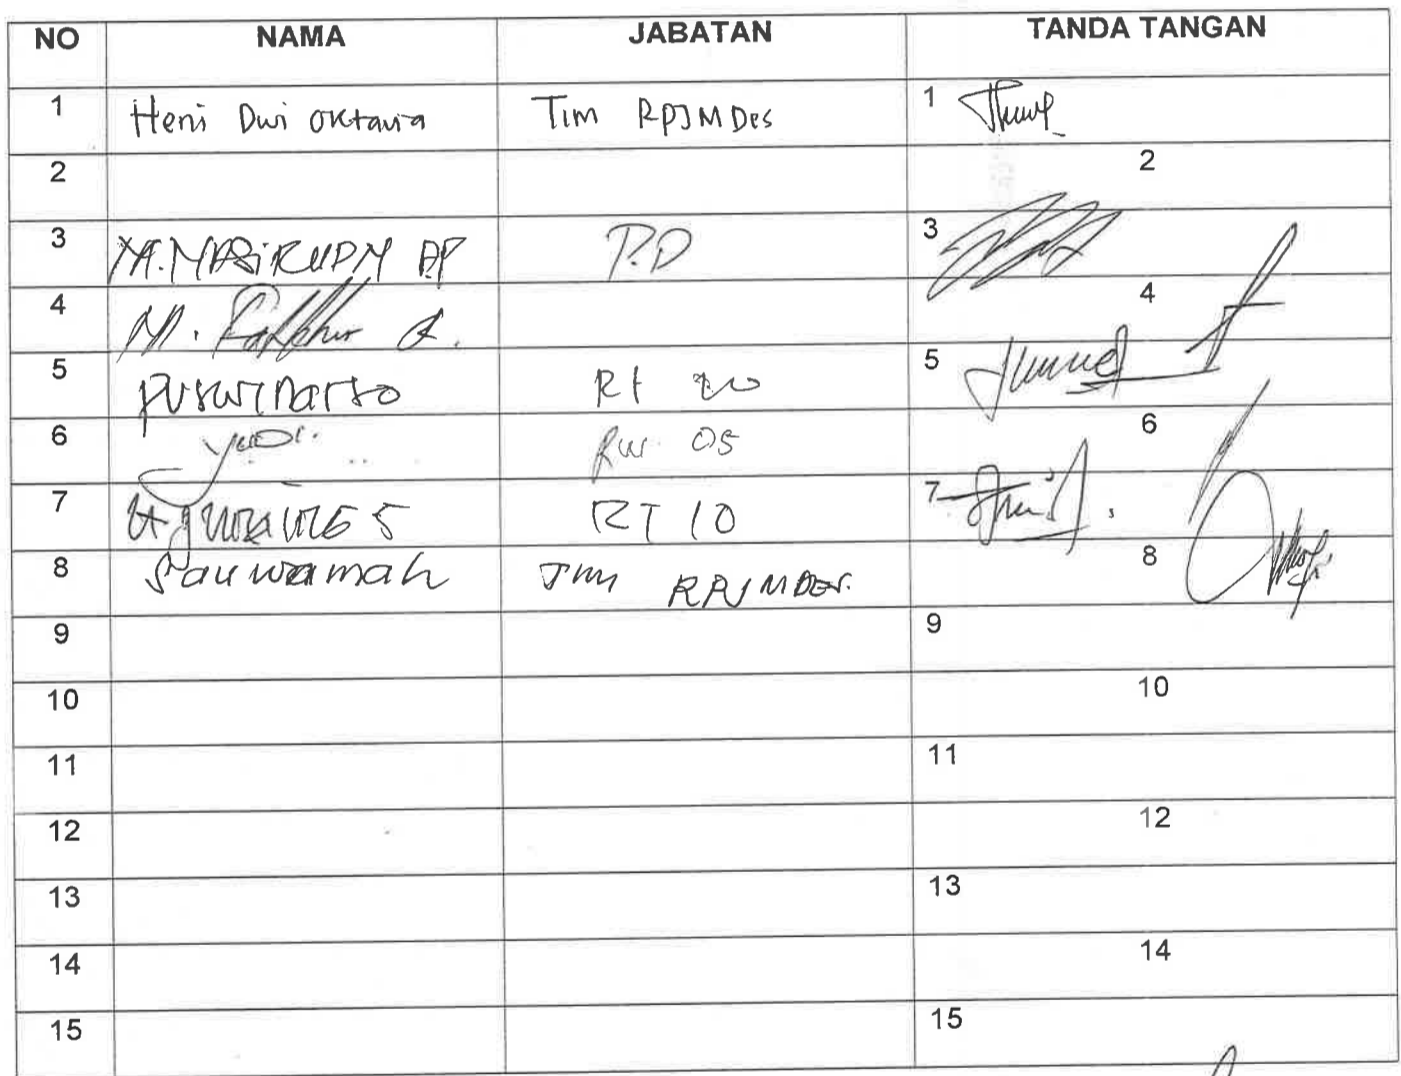 NO NAMA JABATAN TANDA TANGAN
1 Heni Dwi Oktavia Tim RPJM Des 1
2 2
3 M. P.D 3
4 M. 4
5 RT 20 5
6 Yudi. RW. 05 6
7 RT 10 7
8 Sauwamah Tim RPJMDes. 8
9 9
10 10
11 11
12 12
13 13
14 14
15 15